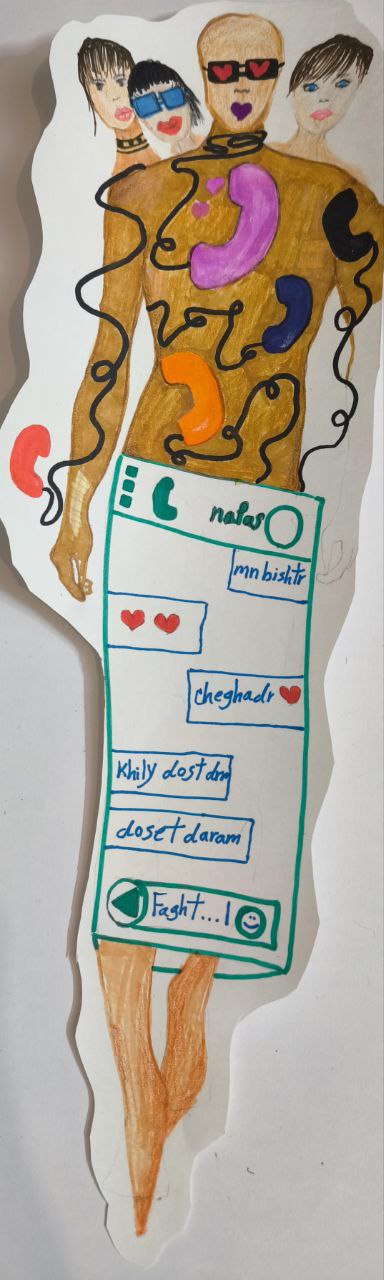 nafas
mn bishtr
cheghadr
Khily dost drm
doset daram
Faght...